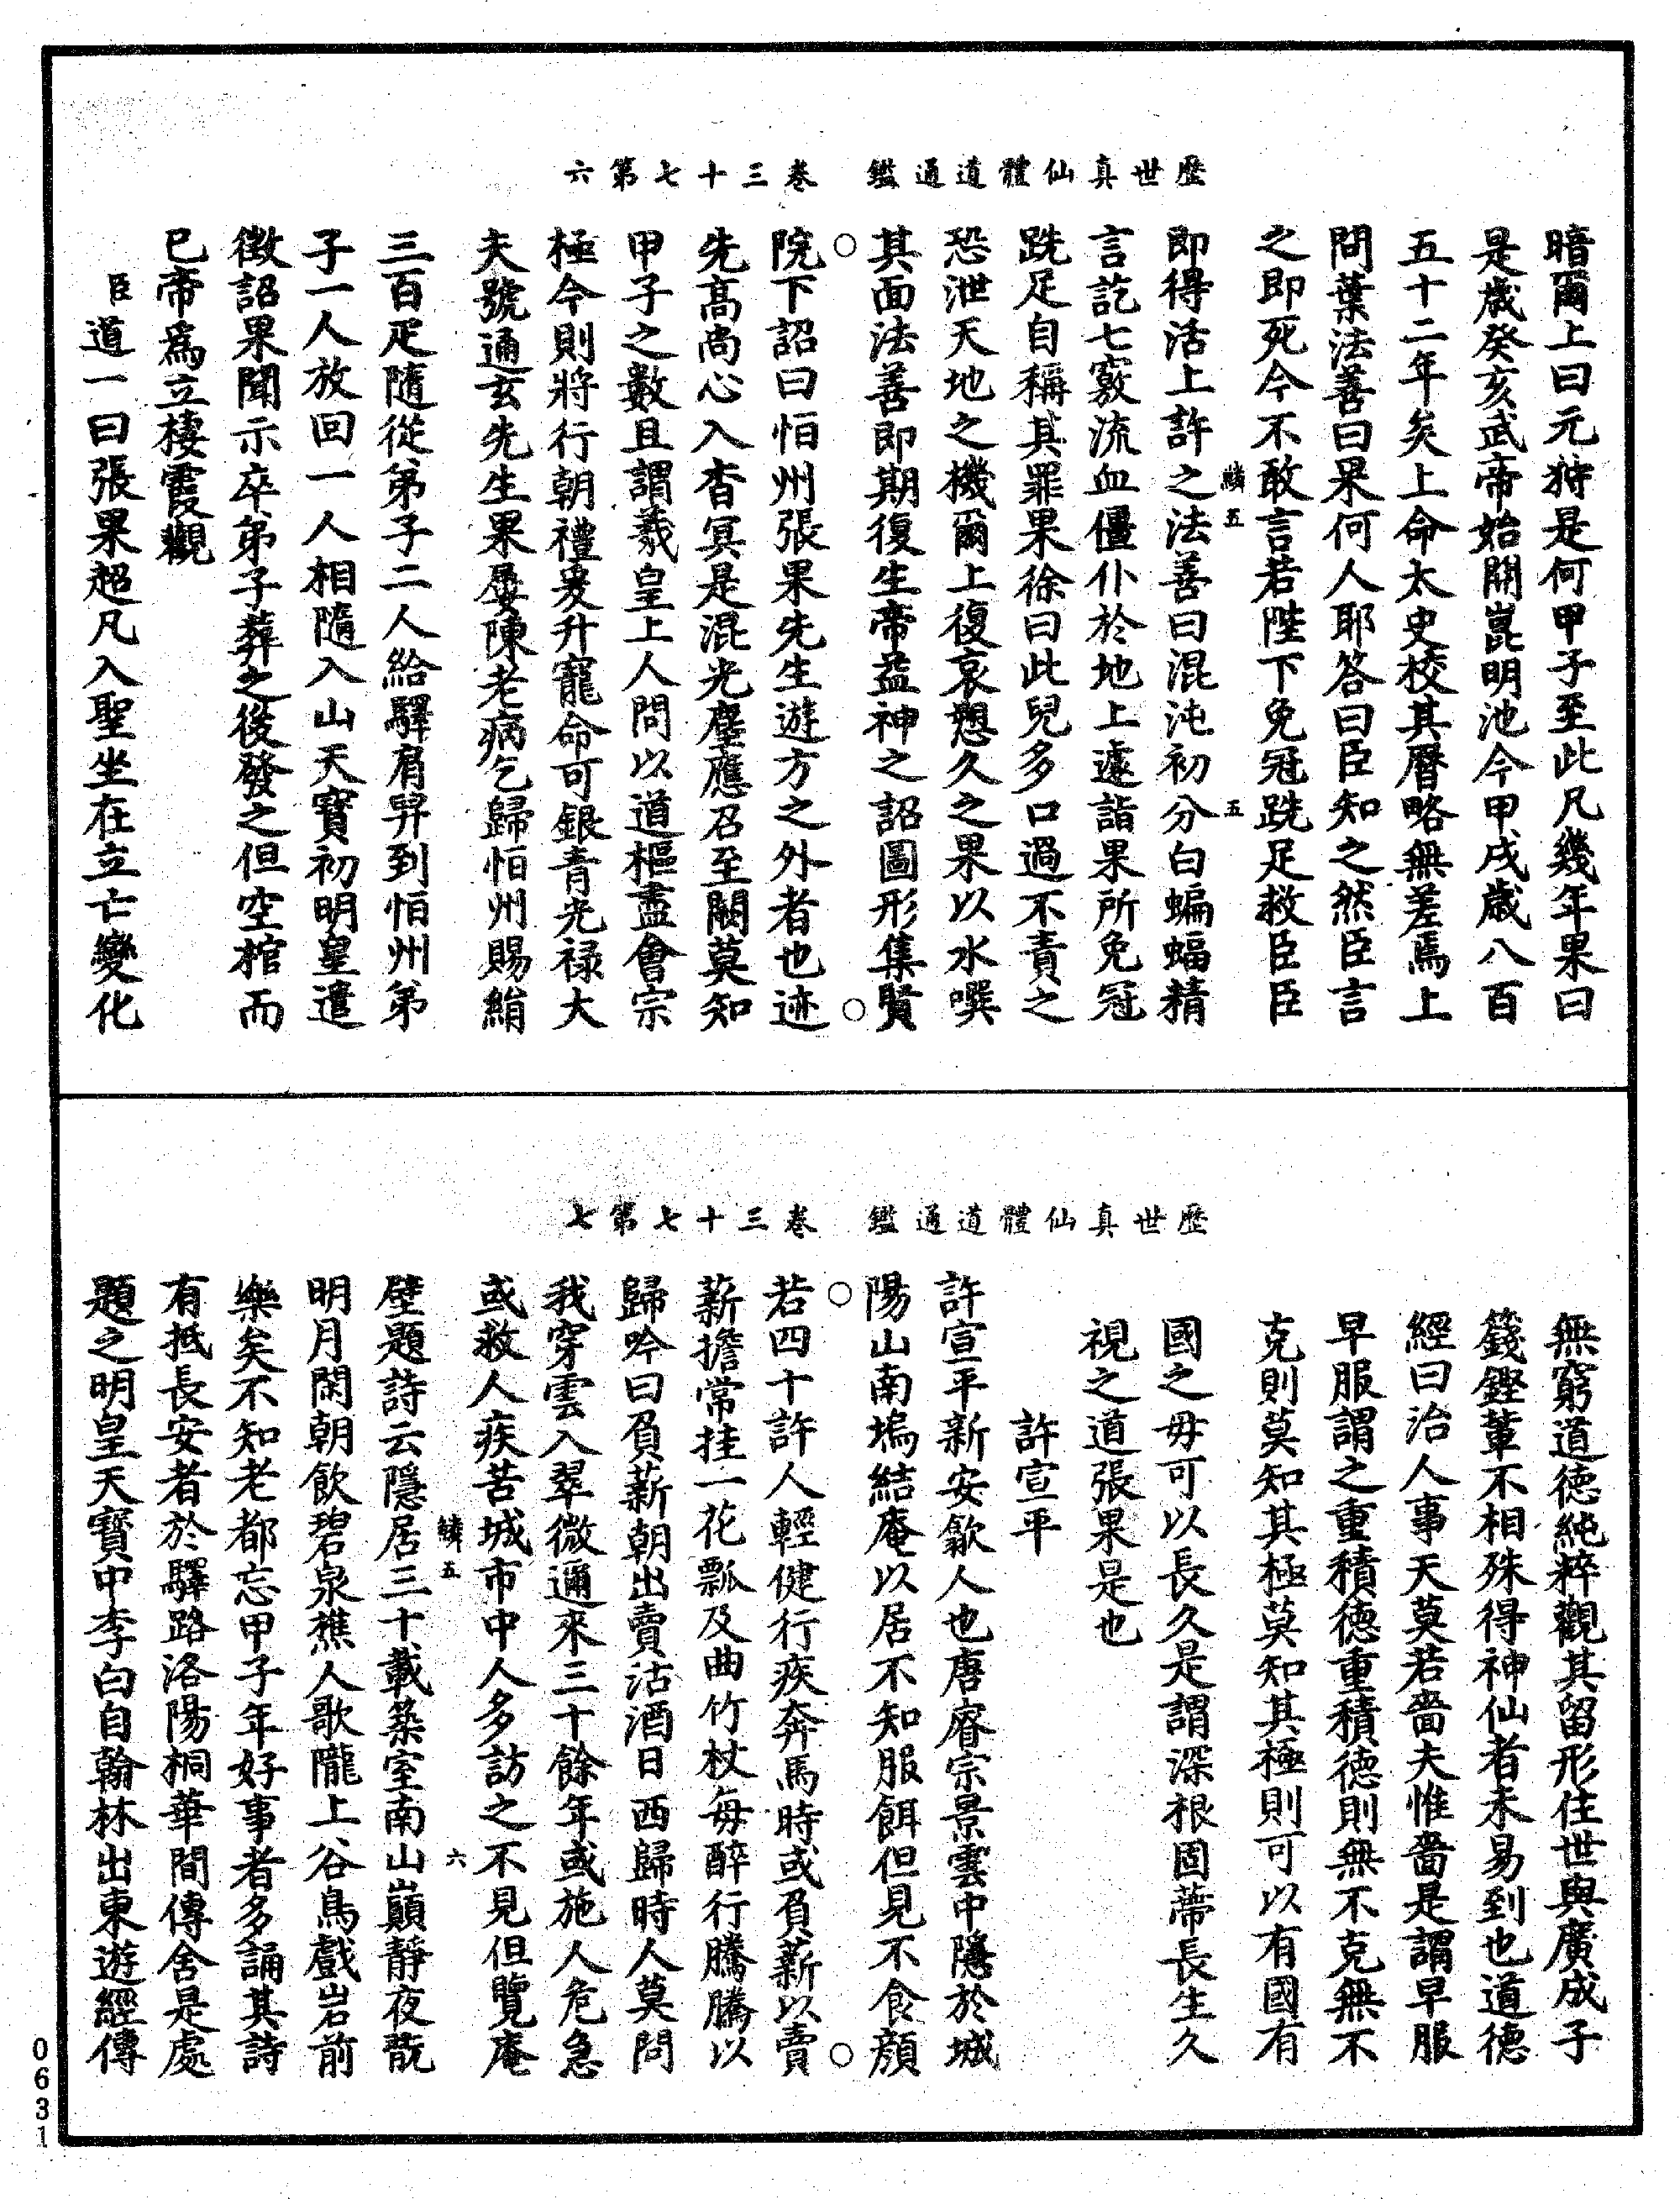 歷世真仙體道通鑑　卷三十七第六
暗爾上曰元狩是何甲子至此凡幾年果曰
是歲癸亥武帝始開崑明池今甲戌歲八百
五十二年矣上命太史校其曆略無差焉上
問葉法善曰果何人耶答曰臣知之然臣言
之即死今不敢言若陛下免冠跣足救臣臣
鱗五
五
即得活上許之法善曰混沌初分白蝙蝠精
言訖七竅流血僵仆於地上遽詣果所免冠
跣足自稱其罪果徐曰此兒多口過不責之
恐泄天地之機爾上復哀懇久之果以水噀
其面法善即期復生帝益神之詔圖形集賢
院下詔曰恒州張果先生遊方之外者也迹
先高尚心入杳冥是混光塵應召至闕莫知
甲子之數且謂羲皇上人問以道樞盡會宗
極今則將行朝禮爰升寵命可銀青光祿大
夫號通玄先生果屢陳老病乞歸恒州賜絹
三百疋隨從弟子二人給驛肩舁到恒州弟
子一人放回一人相隨入山天寶初明皇遣
徵詔果聞示卒弟子葬之後發之但空棺而
已帝為立棲霞觀
臣道一曰張果超凡入聖坐在立亡變化
歷世真仙體道通鑑　卷三十七第七
無窮道德純粹觀其留形住世與廣成子
籛鏗輩不相殊得神仙者未易到也道德
經曰治人事天莫若嗇夫惟嗇是謂早服
早服謂之重積德重積德則無不克無不
克則莫知其極莫知其極則可以有國有
國之母可以長久是謂深根固蔕長生久
視之道張果是也
許宣平
許宣平新安歙人也唐睿宗景雲中隱於城
陽山南塢結庵以居不知服餌但見不食顏
若四十許人輕健行疾奔馬時或負薪以賣
薪擔常挂一花瓢及曲竹杖每醉行騰騰以
歸吟曰負薪朝出賣沽酒日西歸時人莫問
我穿雲入翠微邇來三十餘年或施人危急
或救人疾苦城市中人多訪之不見但覽庵
鱗五
六
壁題詩云隱居三十載築室南山巔靜夜翫
明月閑朝飲碧泉樵人歌隴上谷鳥戲岩前
樂矣不知老都忘甲子年好事者多誦其詩
有抵長安者於驛路洛陽桐華間傳舍是處
題之明皇天寶中李白自翰林出東遊經傳
0631